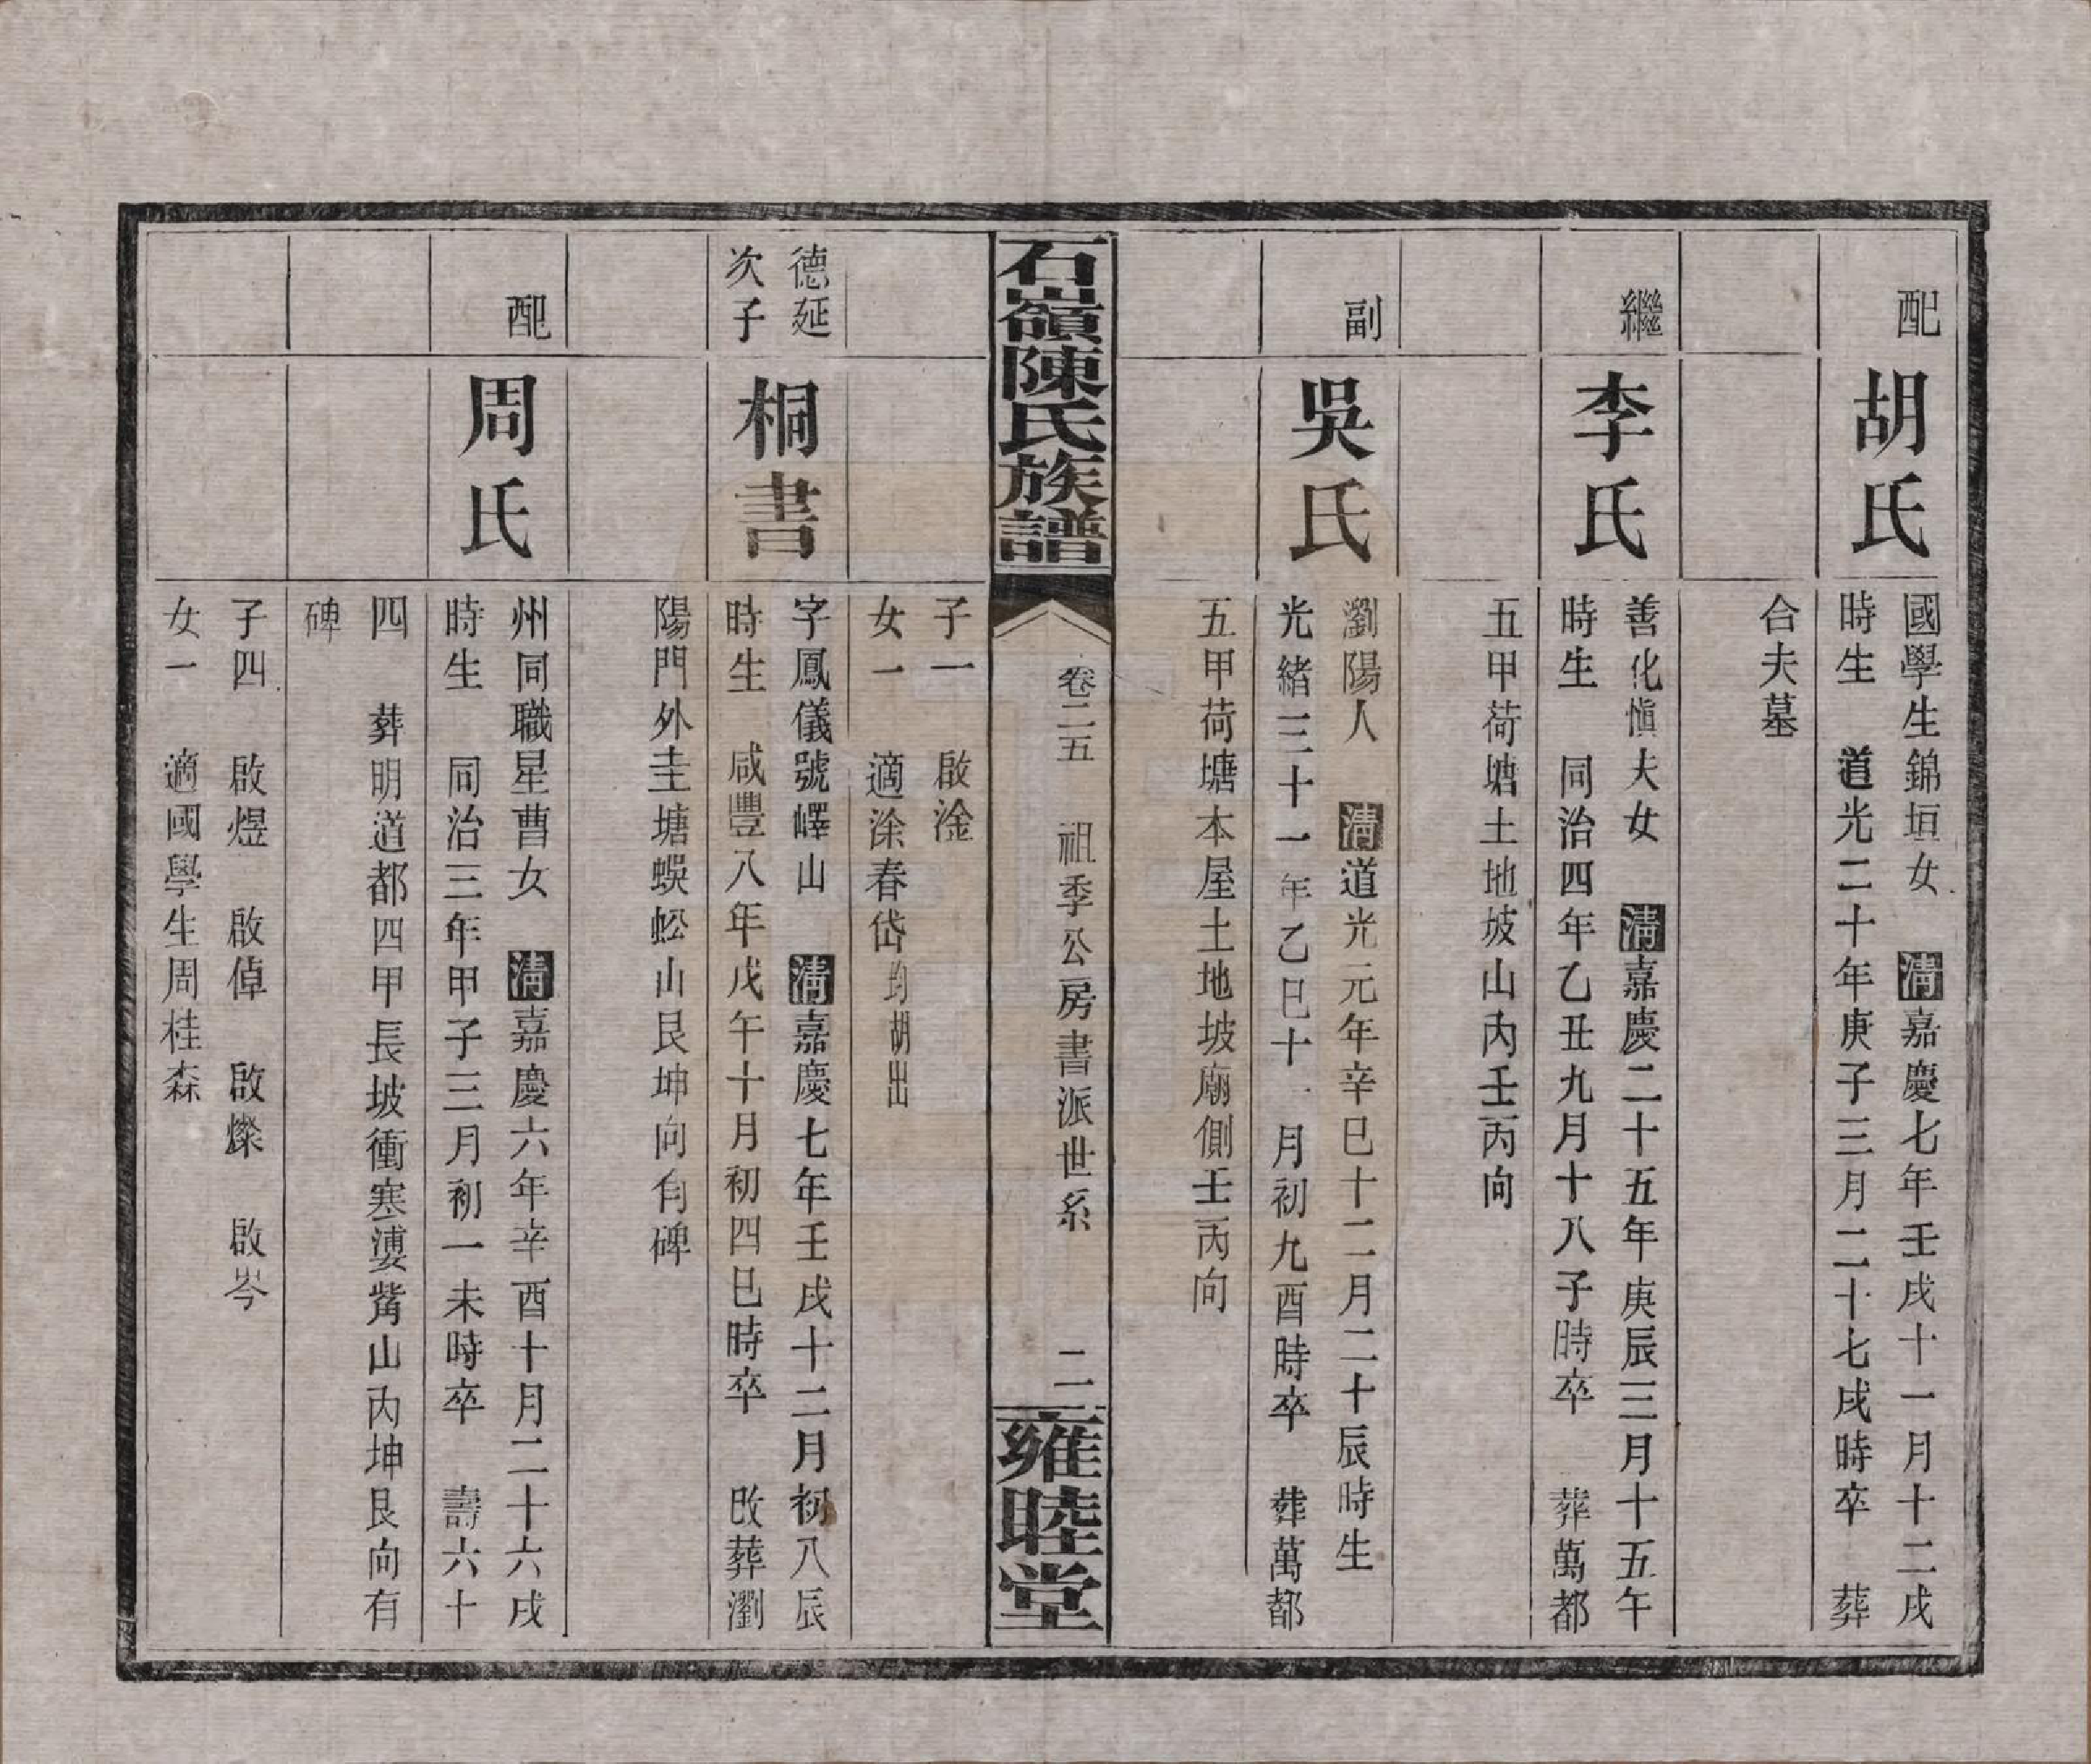 配
胡氏
國學生錦垣女 清嘉慶七年壬戌十一月十二戌
時生 道光二十年庚子三月二十七戌時卒 葬
合夫墓
繼
李氏
善化愼夫女 清嘉慶二十五年庚辰三月十五午
時生 同治四年乙丑九月十八子時卒 葬萬都
五甲荷塘土地坡山丙壬丙向
副
吳氏
瀏陽人 清道光元年辛巳十二月二十辰時生
光緒三十一年乙巳十一月初九酉時卒 葬萬都
五甲荷塘本屋土地坡廟側壬丙向
石嶺陳氏族譜
卷二五 祖季公房書派世系 二
雍睦堂
子一 啟淦
女一 適涂春岱均胡出
德延
次子
桐書
字鳳儀號嶧山 清嘉慶七年壬戌十二月初八辰
時生 咸豐八年戊午十月初四巳時卒 改葬瀏
陽門外圭塘蜈蚣山艮坤向有碑
配
周氏
州同職星曹女 清嘉慶六年辛酉十月二十六戌
時生 同治三年甲子三月初一未時卒 壽六十
四 葬明道都四甲長坡衝寒婆觜山內坤艮向有
碑
子四 啟煜 啟倬 啟燦 啟岑
女一 適國學生周桂森